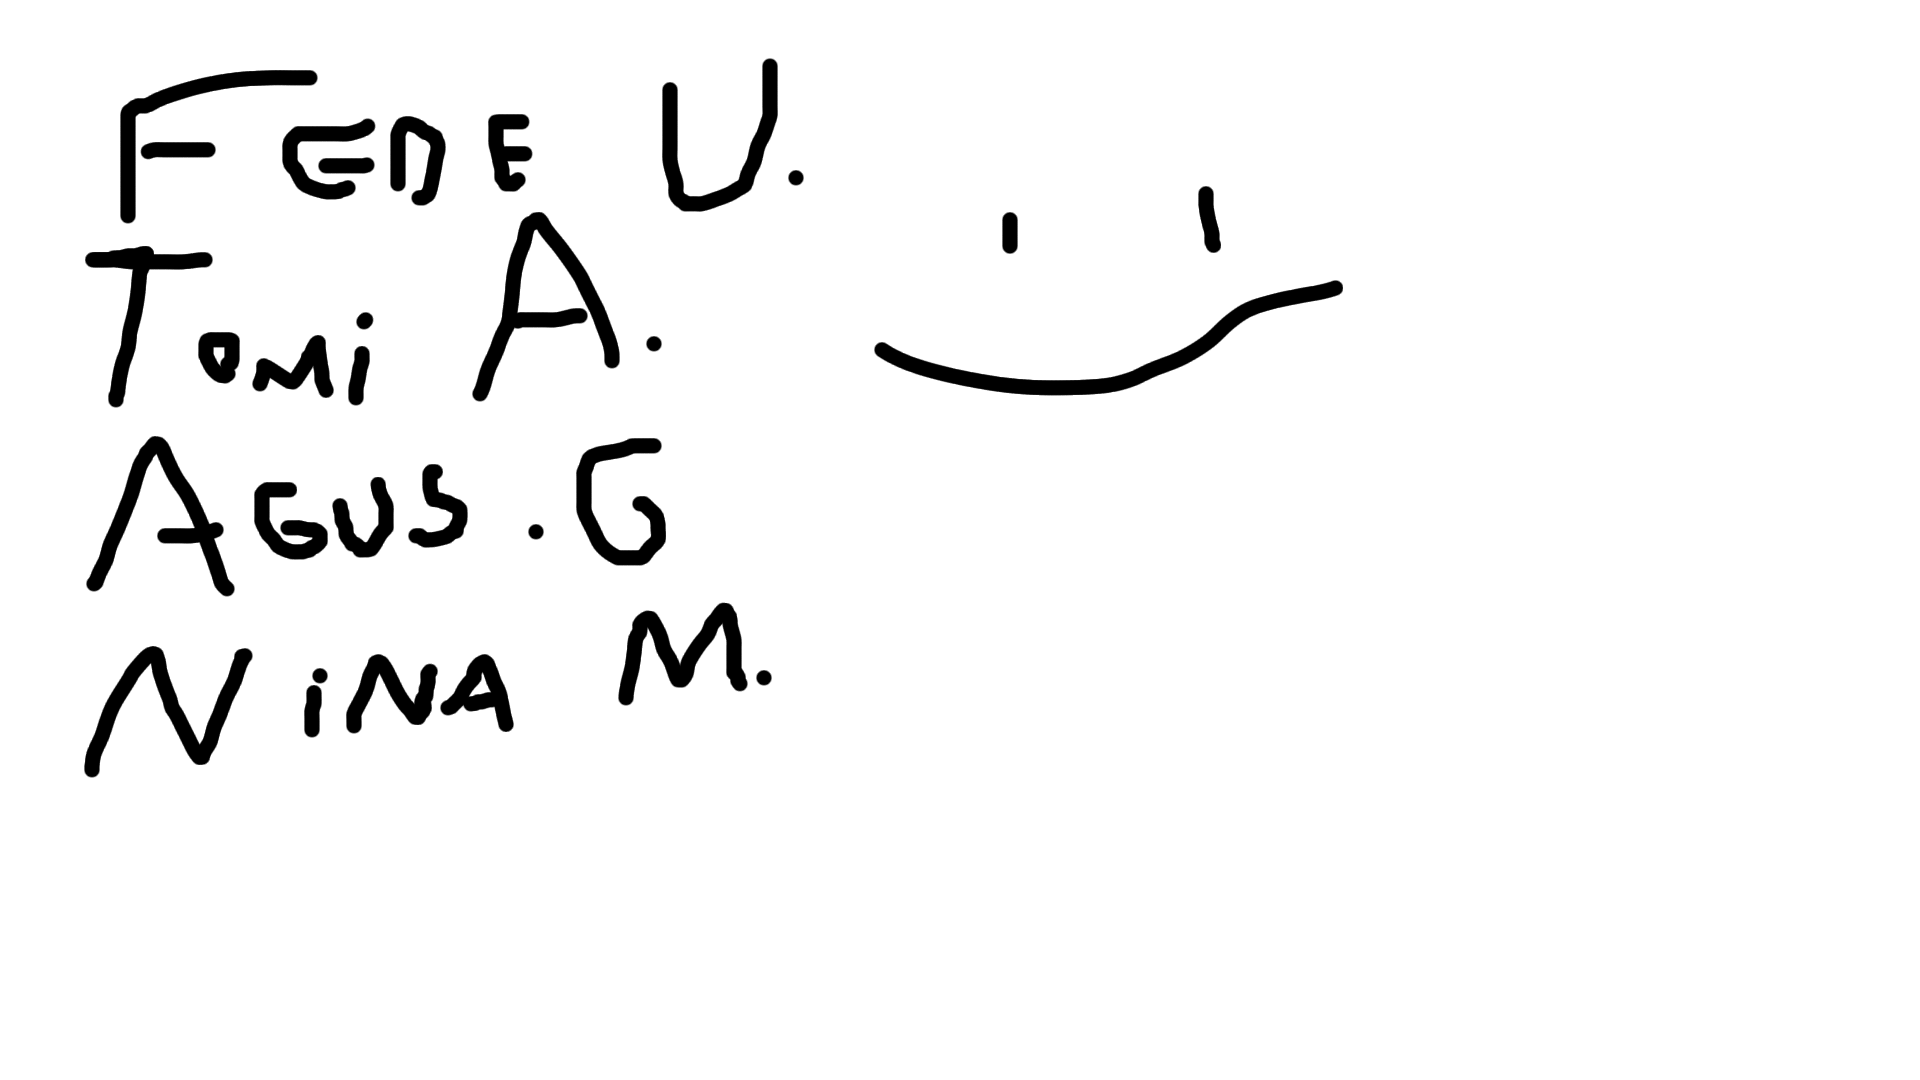 FEDE U.
Tomi A.
AGUS .G
NiNA M.